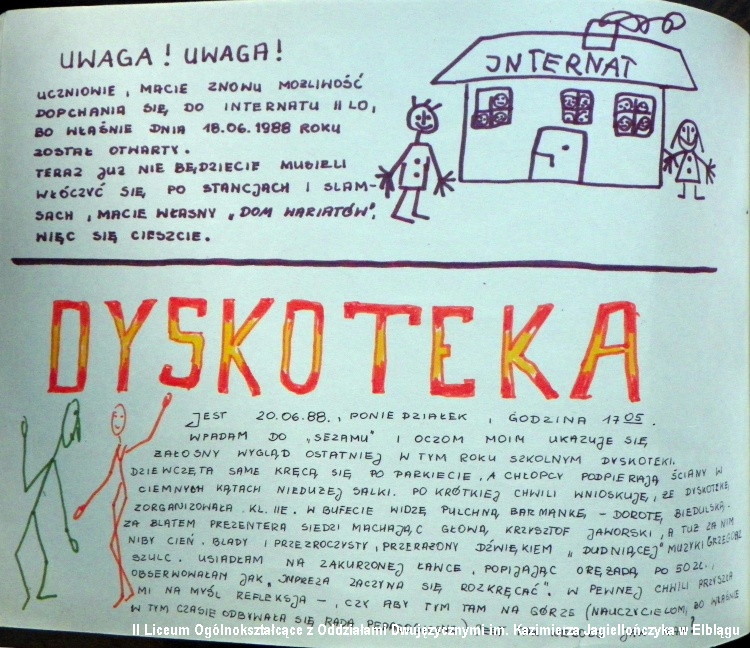 UWAGA! UWAGA!
UCZNIOWIE, MACIE ZNOWU MOŻLIWOŚĆ
DOPCHANIA SIĘ DO INTERNATU II LO,
BO WŁAŚNIE DNIA 18.06.1988 ROKU
ZOSTAŁ OTWARTY.
TERAZ JUŻ NIE BĘDZIECIE MUSIELI
WŁÓCZYĆ SIĘ PO STANCJACH I SLAM-
SACH, MACIE WŁASNY „DOM WARIATÓW",
WIĘC SIĘ CIESZCIE.
INTERNAT
DYSKOTEKA
JEST 20.06.88., PONIEDZIAŁEK, GODZINA 17 05.
WPADAM DO „SEZAMU" I OCZOM MOIM UKAZUJE SIĘ
ŻAŁOSNY WYGLĄD OSTATNIEJ W TYM ROKU SZKOLNYM DYSKOTEKI.
DZIEWCZĘTA SAME KRĘCĄ SIĘ PO PARKIECIE, A CHŁOPCY PODPIERAJĄ ŚCIANY W
CIEMNYCH KĄTACH NIEDUŻEJ SALKI. PO KRÓTKIEJ CHWILI WNIOSKUJĘ, ŻE DYSKOTEKĘ
ZORGANIZOWAŁA KL. IIE. W BUFECIE WIDZĘ PULCHNĄ BARMANKĘ - DOROTĘ BIEDULSKĄ.
ZA BLATEM PREZENTERA SIEDZI MACHAJĄC GŁOWĄ, KRZYSZTOF JAWORSKI, A TUŻ ZA NIM
NIBY CIEŃ. BLADY I PRZEZROCZYSTY, PRZERAŻONY DŹWIĘKIEM „DUDNIĄCEJ" MUZYKI GRZEGORZ
SZULC. USIADŁAM NA ZAKURZONEJ ŁAWCE, POPIJAJĄC ORĘŻADĄ PO 50 ZŁ.,
OBSERWOWAŁAM JAK „IMPREZA ZACZYNA SIĘ ROZKRĘCAĆ". W PEWNEJ CHWILI PRZYSZŁA
MI NA MYŚL REFLEKSJA -, CZY ABY TYM TAM NA GÓRZE (NAUCZYCIELOM, BO WŁAŚNIE
W TYM CZASIE ODBYWAŁA SIĘ RADA
II Liceum Ogólnokształcące z Oddziałami Dwujęzycznymi im. Kazimierza Jagiellończyka w Elblągu